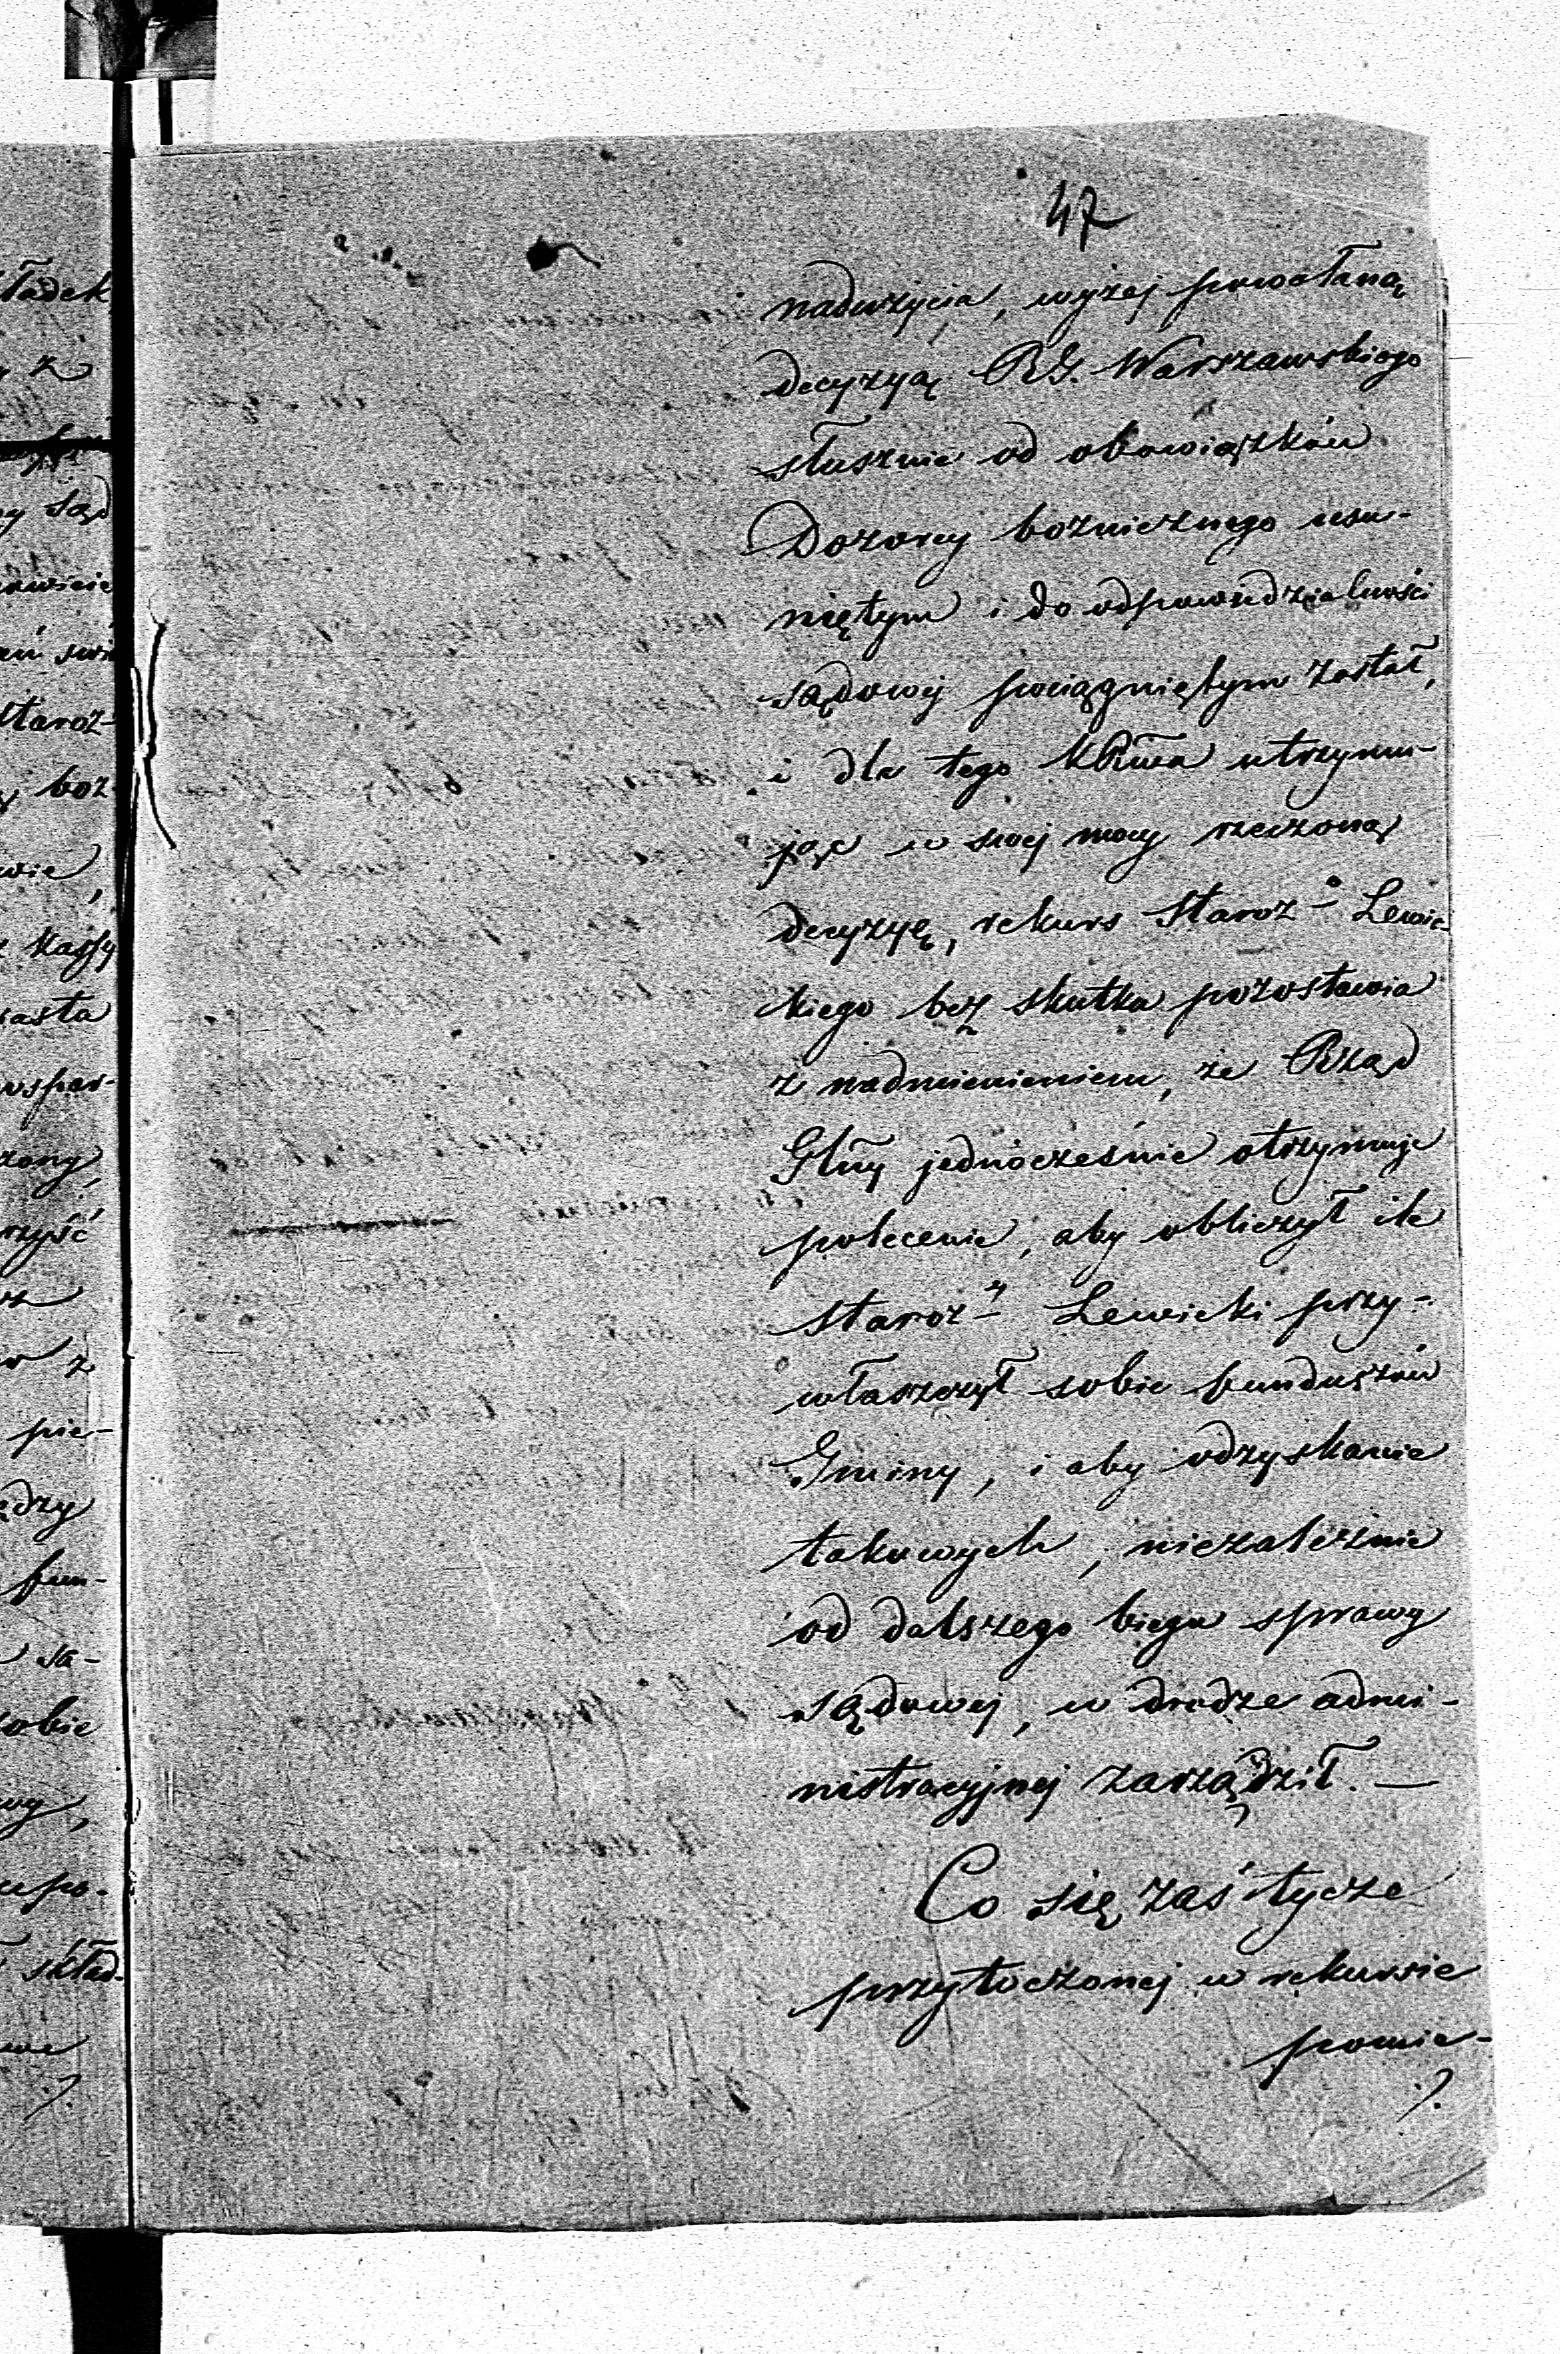 47
nadużycia, wyżej powołaną
decyzyą RG. Warszawskiego
słusznie od obowiązków
Dozorcy bożnicznego usu-
niętym i do odpowiedzialności
sądowej pociągniętym został,
i dla tego utrzymu-
jąc w swej mocy rzeczoną
decyzyę, rekurs Staroz-o Lewic-
kiego bez skutku pozostawia
z nadmienieniem, że Rząd
Glny jednocześnie otrzymuje
polecenie, aby obliczył ile
Staroz-y Lewicki przy-
właszczył sobie funduszów
Gminy, i aby odzyskanie
takowych, niezależnie
od dalszego biegu sprawy
sądowej, w drodze admi-
nistracyjnej zarządził. —
Co się zaś tycze
przytoczonej w rekursie
pomie-
./.
ładek
z
sąd
Staroz-
boż-
wie,
Kassy
iasta
wspar-
rzyść
z
pie-
ędzy
fun-
sa-
sobie
upo-
skład-
./.